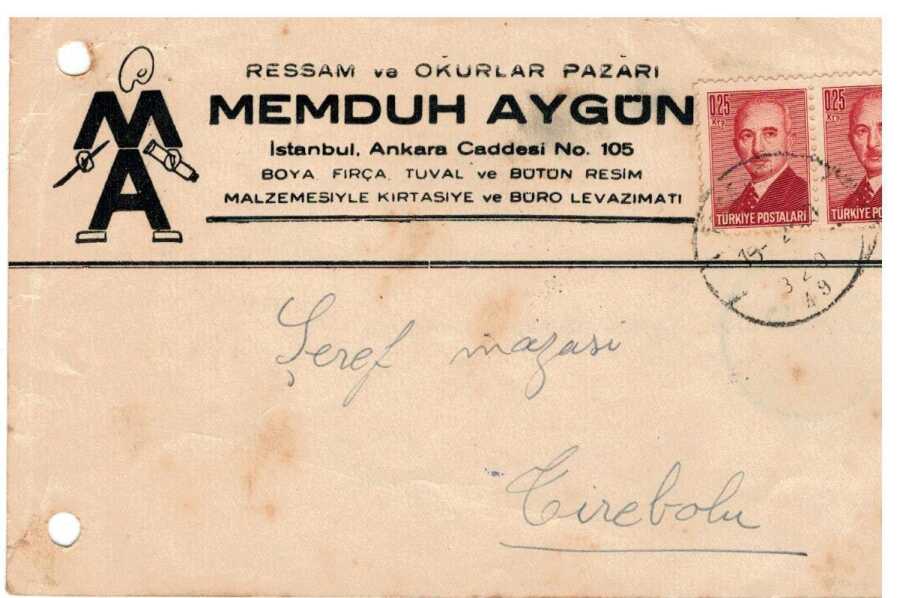 MA
RESSAM ve OKURLAR PAZARI
MEMDUH AYGÜN
İstanbul, Ankara Caddesi No. 105
BOYA FIRÇA, TUVAL ve BÜTÜN RESİM
MALZEMESİYLE KIRTASİYE ve BÜRO LEVAZIMATI
0.25 0.25
Krş.
TÜRKİYE POSTALARI TÜRKİYE PO
19- 2
3 20
49
Şeref mağasi
Tirebolu